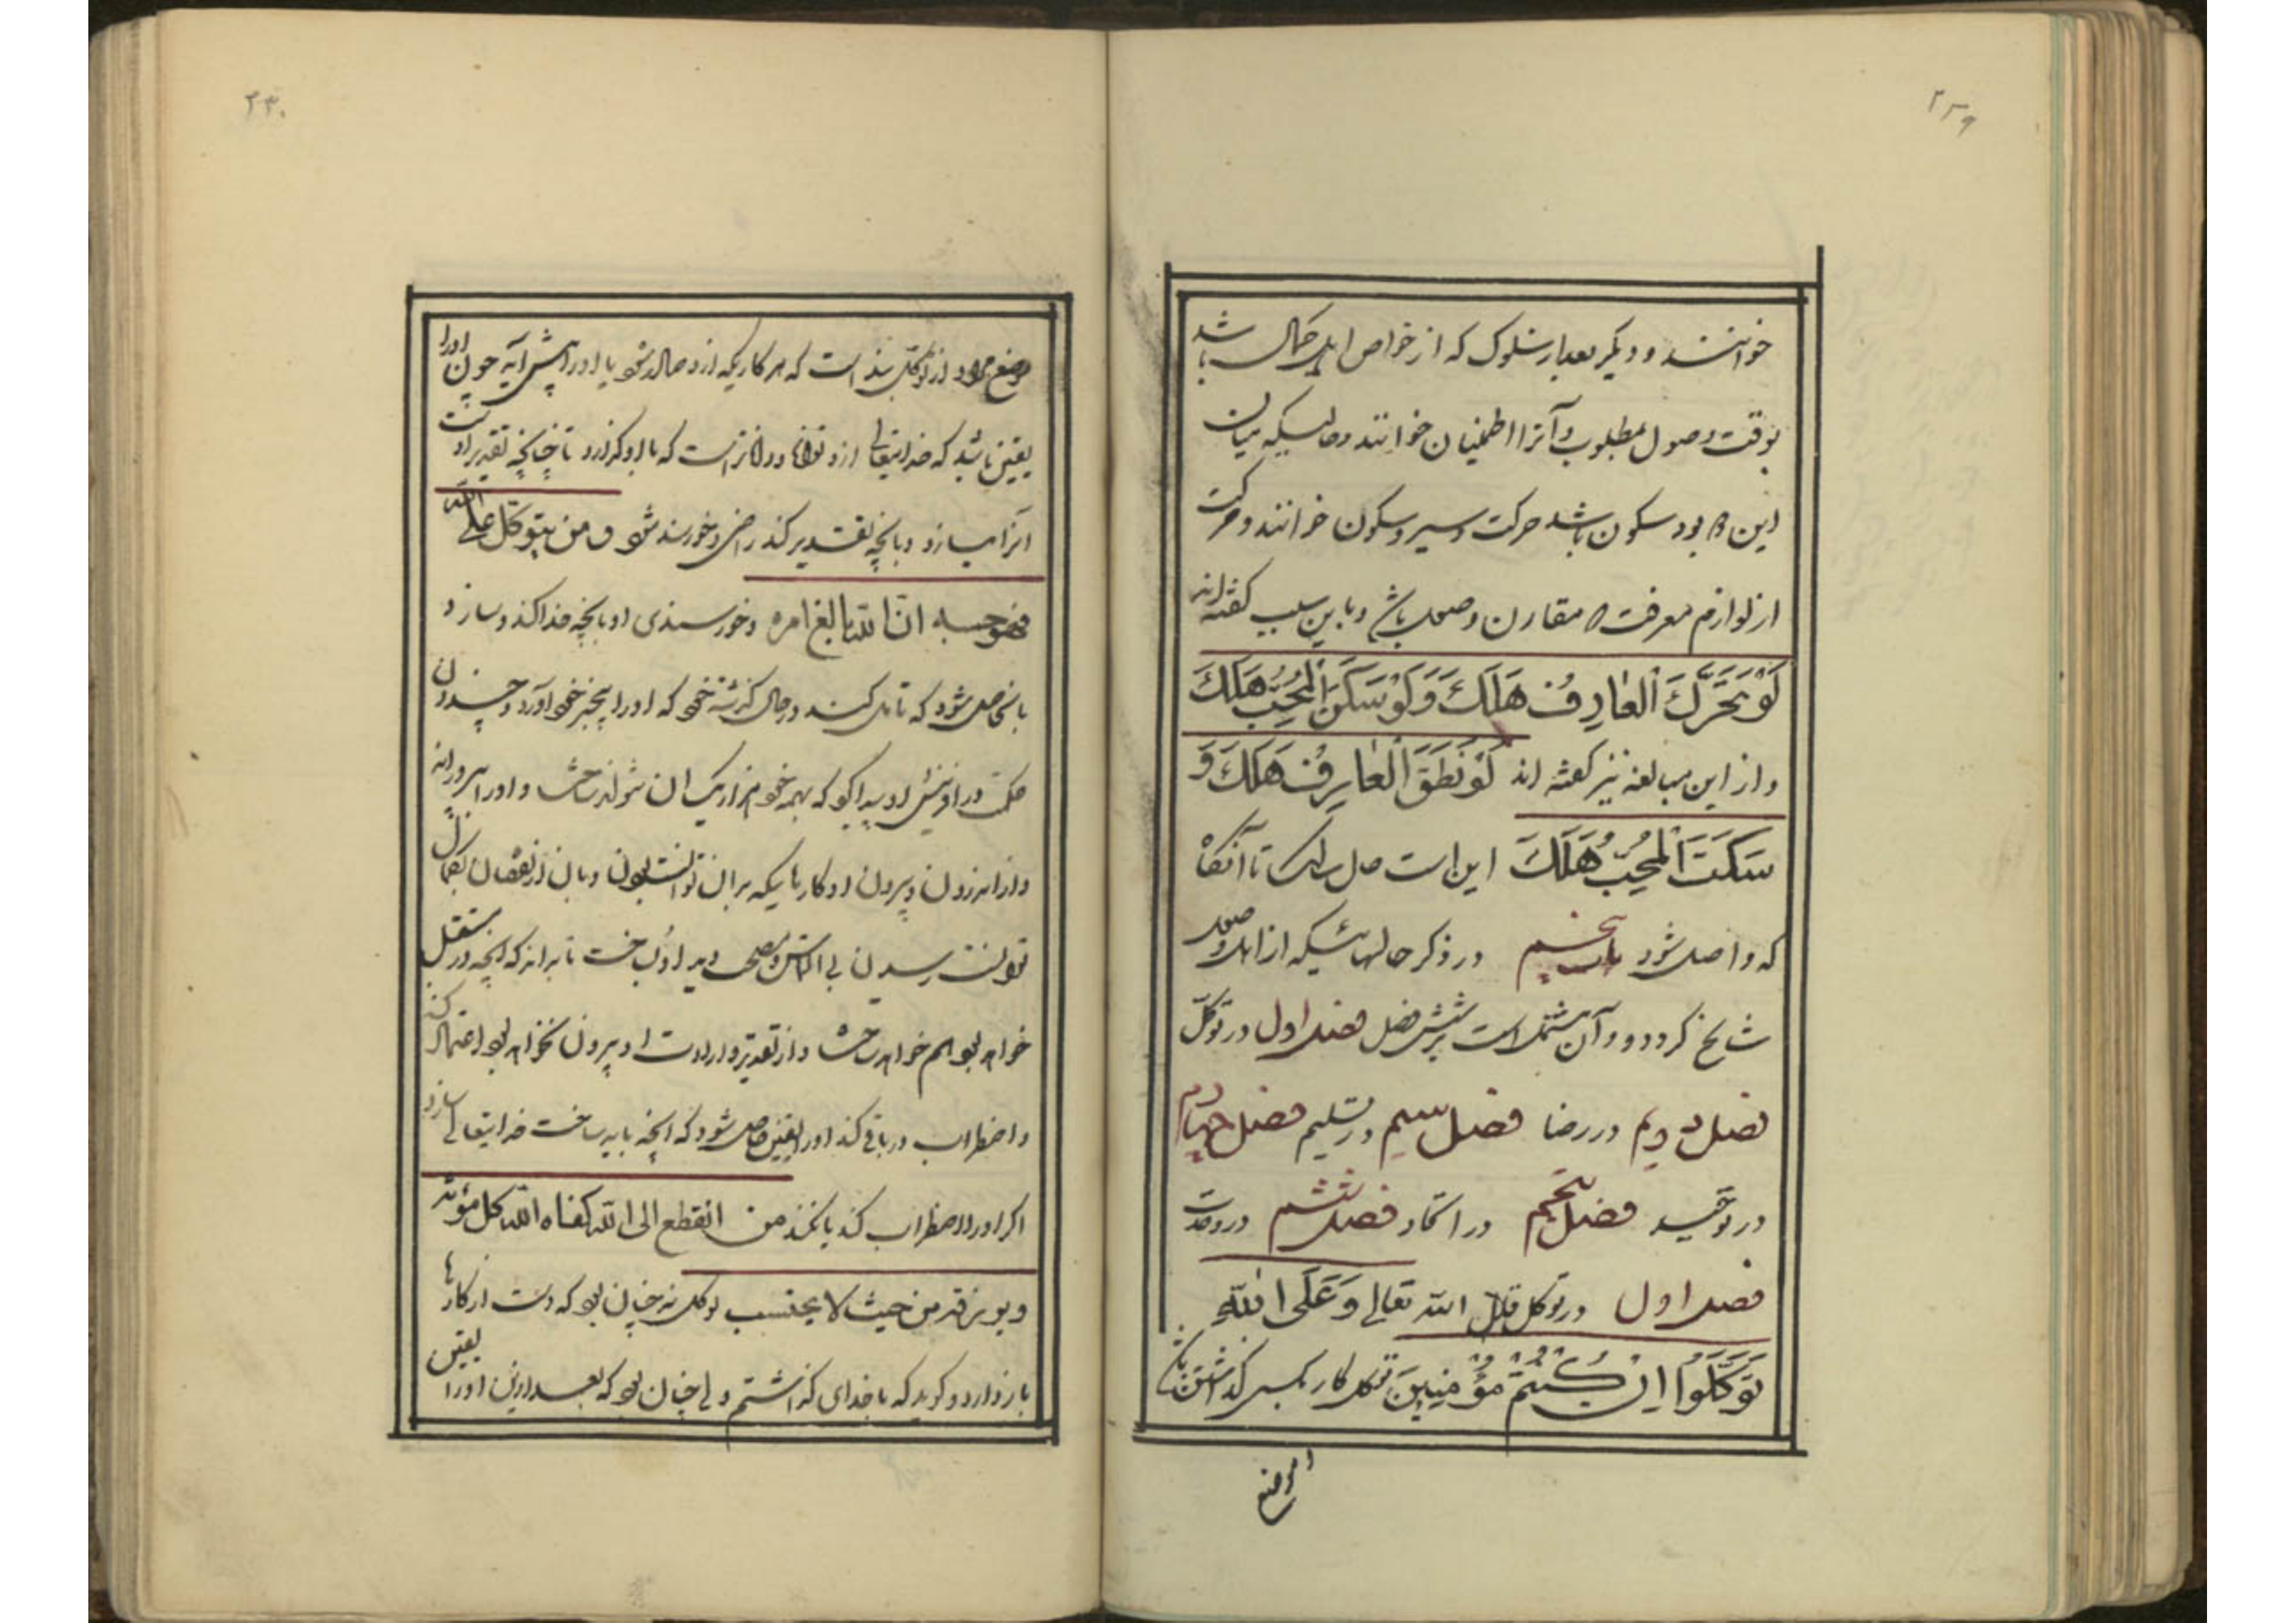 ۲۳۹
خوانند و دیگر بعد از سلوک که از خواص اهل کمال باشد
بوقت وصول بمطلوب و آنرا اطمینان خوانند و حالیکه میان
این دو بود سکون باشد حرکت و سیر و سکون خوانند و حرکت
از لوازم معرفت مقارن وصول باشد و باین سبب گفته‌اند
لَوْ تَحَرَّكَ الْعٰارِفُ هَلَكَ وَ لَوْ سَكَنَ الْمُحِبُّ هَلَكَ
و از این مبالغه نیز گفته اند لَوْ نَطَقَ الْعٰارِفُ هَلَكَ وَ
سَكَتَ الْمُحِبُّ هَلَكَ این است حال سالک تا آنگاه
که واصل شود باب پنجم در ذکر حالهائیکه از اهل وصول
سانح گردد و آن مشتمل است بر شش فصل فصل اول در توکّل
فصل دویم در رضا فصل سیم در تسلیم فصل چهارم
در توحید فصل پنجم در اتحاد فصل ششم در وحدت
فصل اول در توکل قال الله تعالی وَ عَلَى اللّٰهِ
تَوَكَّلُوا اِنْ كُنْتُمْ مُؤْمِنِينَ توکل کار بکسی گذاشتن باشد
۲۴۰
موضع مراد از توکل بنده است که هر کاریکه ازو صادر شود یا او را پیش آید چون او را
یقین باشد که خدایتعالی ازو تواناتر و داناتر است که با او گذارد تا چنانچه تقدیر اوست
آنرا میسازد و بآنچه تقدیر کند راضی و خورسند شود و من یتوکل علی الله
فهو حسبه ان الله بالغ امره و خورسندی او بآنچه خدا کند و سازد
بآن حاصل شود که تامل کند در حال گذشته خود که او را بیخبر خود آورد و چندان
حکمت در آفرینش او پیدا کرد که بهمه عمر خود هزار یک آن نتواند شناخت و او را بپرورانید
و از اندرون و بیرون او کارهائیکه بر آن توانست بودن و بآن از نقصان بکمال
توانست رسیدن بی التماس و مصلحت دید او بساخت تا بداند که آنچه در مستقبل
خواهد بود هم خواهد ساخت و از تقدیر و ارادت او بیرون نخواهد بود اعتماد کند
و اضطراب در باقی کند او را یقین حاصل شود که آنچه باید ساخت خدایتعالی سازد
اگر او را اضطراب کند یا نکند من انقطع الی الله کفاه الله کل مؤنته
و یرزقه من حیث لا یحتسب توکل نه چنان بود که دست از کارها
باز دارد و گوید که با خدای گذاشتم ولی چنان بود که بعد از این او را یقین